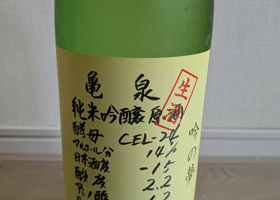 亀泉
生酒
純米吟醸原酒
吟の夢
酵母 CEL-24
アルコール分 14%
日本酒度 -15
酸度 2.2